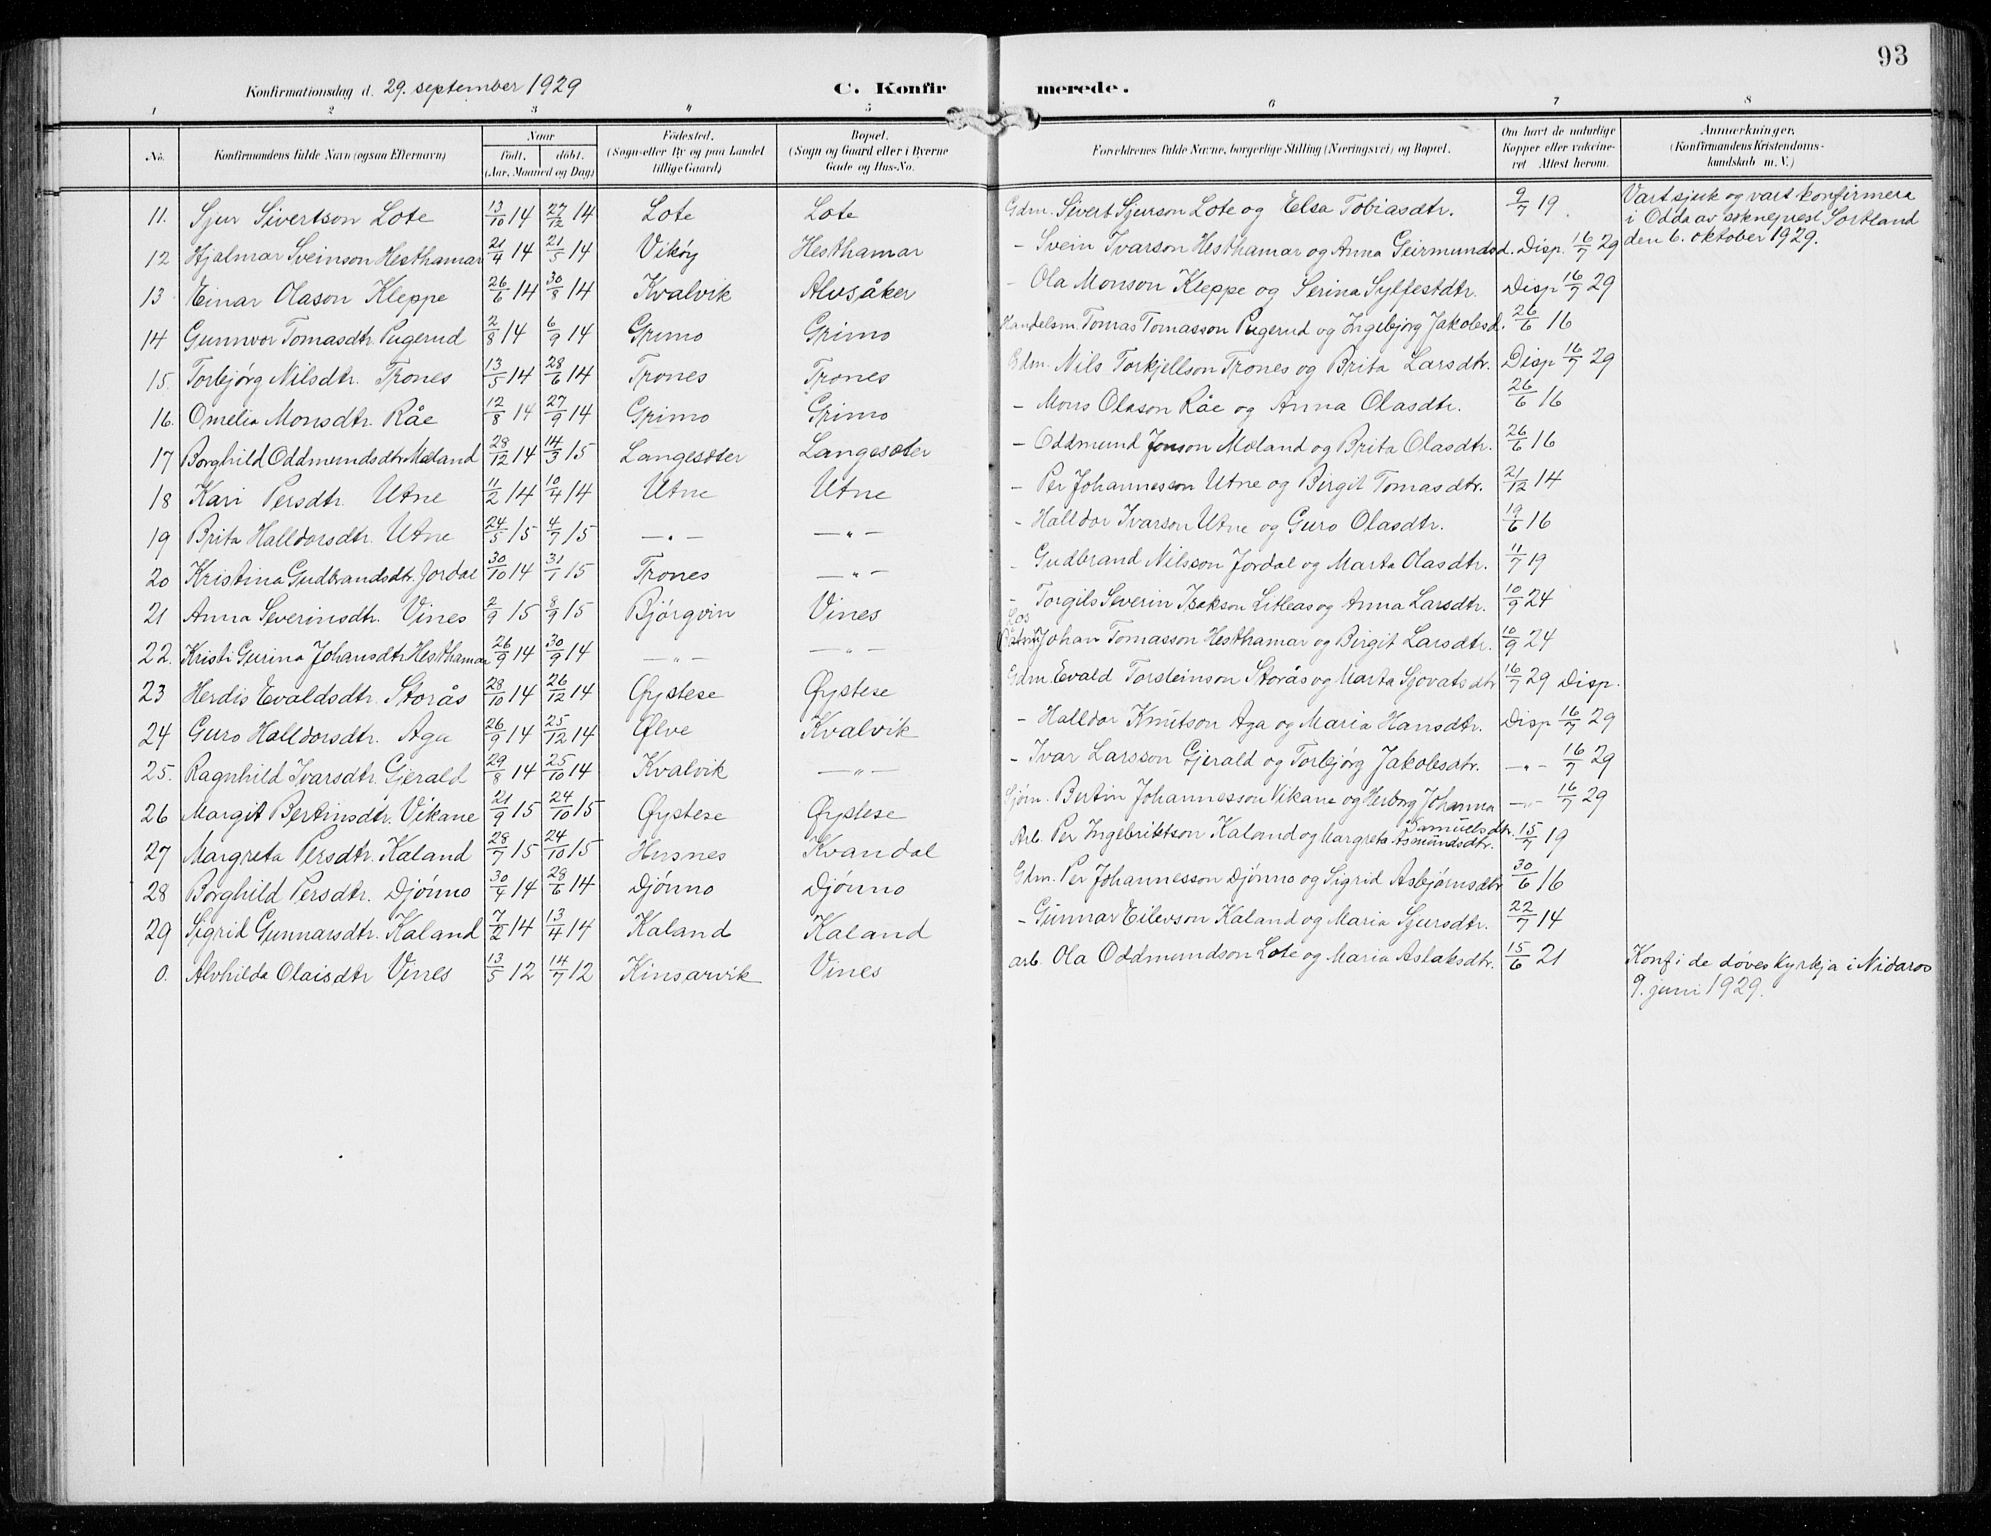 93
Konfirmationsdag d. 29. september 1929 C. Konfirmerede.
1 2 3 4 5 6 7 8
No. Konfirmandens fulde Navn (ogsaa Efternavn) Naar født. døbt. (Aar, Maaned og Dag) Fødested. (Sogn eller By og paa Landet tillige Gaard) Bopæl. (Sogn og Gaard eller i Byerne Gade og Hus-No. Forældrenes fulde Navne, borgerlige Stilling (Næringsvei) og Bopæl. Om havt de naturlige Kopper eller vakcineret. Attest herom. Anmærkninger. (Konfirmandens Kristendomskundskab m. V.)
11. Sjur Sivertson Lote 13/10 14 27/12 14 Lote Lote Gdm. Sivert Sjurson Lote og Elsa Tobiasdtr. 9/7 19 Vart sjuk og vart konfirmera i Odda av sokneprest Sortland den 6. oktober 1929.
12 Hjalmar Sveinson Hesthamar 21/4 14 21/5 14 Vikøy Hesthamar - Svein Ivarson Hesthamar og Anna Geirmundsd. Disp. 16/7 29
13 Einar Olason Kleppe 26/6 14 30/8 14 Kvalvik Alvsåker - Ola Monson Kleppe og Serina Sylfestdtr. Disp 16/7 29
14 Gunnvor Tomasdtr. Pugerud 2/8 14 6/9 14 Grimo Grimo Handelsm. Tomas Tomasson Pugerud og Ingebjørg Jakobsd. 26/6 16
15. Torbjørg Nilsdtr. Trones 13/5 14 28/6 14 Trones Trones Gdm. Nils Torkjellson Trones og Brita Larsdtr. Disp 16/7 29
16. Omelia Monsdtr. Råe 12/8 14 27/9 14 Grimo Grimo - Mons Olason Råe og Anna Olasdtr. 26/6 16
17 Borghild Oddmundsdtr Mæland 28/12 14 14/3 15 Langesæter Langesæter - Oddmund Jonson Mæland og Brita Olasdtr. 26/6 16
18 Kari Persdtr Utne 11/2 14 10/4 14 Utne Utne - Per Johannesson Utne og Birgit Tomasdtr. 21/12 14
19 Brita Halldorsdtr. Utne 24/5 15 4/7 15 -"- -"- - Halldor Ivarson Utne og Guro Olasdtr. 19/6 16
20 Kristina Gudbrandsdtr. Jordal 30/10 14 31/1 15 Trones -"- - Gudbrand Nilsson Jordal og Marta Olasdtr. 11/7 19
21 Anna Severinsdtr. Vines 2/9 15 8/9 15 Bjørgvin Vines - Torgils Severin Isakson Litleås og Anna Larsdtr. 10/9 24
22. Kristi Gurina Johansdtr Hesthamar 26/9 14 30/9 14 -"- -"- Los Johan Tomasson Hesthamar og Birgit Larsdtr. 10/9 24
23 Herdis Evaldsdtr. Storås 28/10 14 26/12 14 Øystese Øystese Gdm. Evald Torsteinson Storås og Marta Sjovatsdtr 16/7 29 Disp.
24 Guro Halldorsdtr. Aga 26/9 14 25/12 14 Ølve Kvalvik - Halldor Knutson Aga og Maria Hansdtr. Disp 16/7 29
25. Ragnhild Ivarsdtr. Gjerald 29/8 14 25/10 14 Kvalvik -"- - Ivar Larsson Gjerald og Torbjørg Jakobsdtr. -"- 16/7 29
26 Margit Bertinsdtr. Vikane 21/9 15 24/10 15 Øystese Øystese Sjøm. Bertin Johannesson Vikane og Herborg Johanna Samuelsdtr. -"- 16/7 29
27 Margreta Persdtr. Kaland 28/7 15 24/10 15 Husnes Kvandal Arb. Per Ingebriktson Kaland og Margreta Asmundsdtr. 15/7 19
28 Borghild Persdtr. Djønno 30/4 14 28/6 14 Djønno Djønno Gdm. Per Johannesson Djønno og Sigrid Asbjørnsdtr 30/6 16
29 Sigrid Gunnarsdtr. Kaland 7/2 14 13/4 14 Kaland Kaland - Gunnar Eilevson Kaland og Maria Sjursdtr. 22/7 14
0. Alvhilda Olaisdtr Vines 13/5 12 14/7 12 Kinsarvik Vines arb. Ola Oddmundson Lote og Maria Aslaksdtr. 15/6 21 Konf i de døves kyrkja i Nidaros 9. juni 1929.